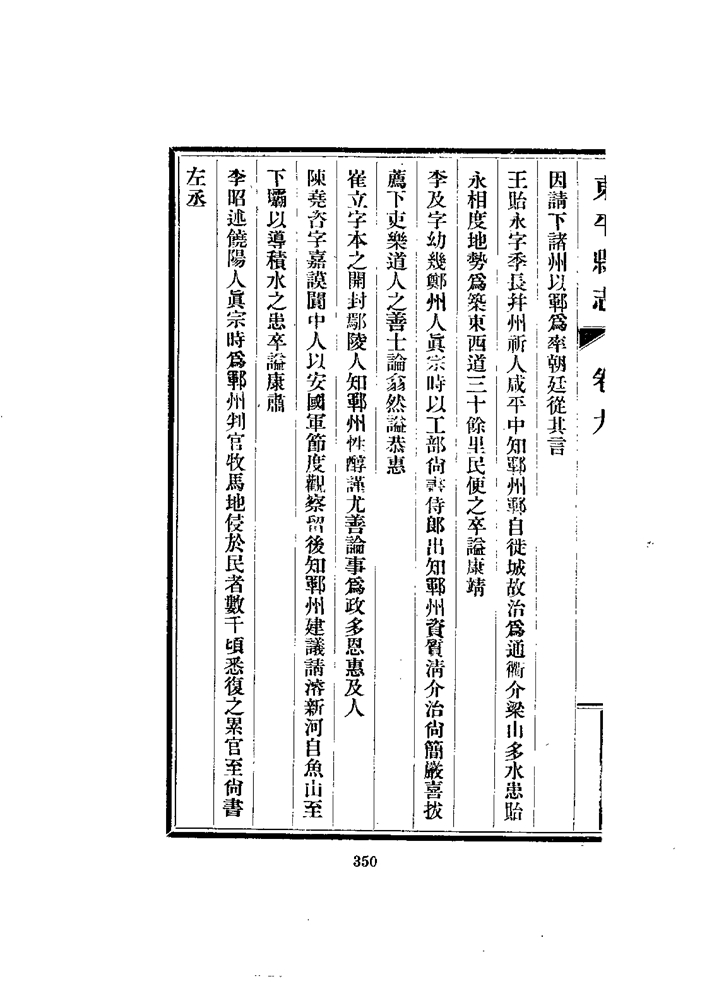 東平縣志 卷九
因請下諸州以鄆爲率朝廷從其言
王貽永字季長幷州祈人咸平中知鄆州鄆自徙城故治爲通衢介梁山多水患貽
永相度地勢爲築東西道三十餘里民便之卒謚康靖
李及字幼幾鄭州人眞宗時以工部尙書侍郎出知鄆州資質淸介治尙簡嚴喜拔
薦下吏樂道人之善士論翕然謚恭惠
崔立字本之開封鄢陵人知鄆州性醇謹尤善論事爲政多恩惠及人
陳堯咨字嘉謨閬中人以安國軍節度觀察留後知鄆州建議請濬新河自魚山至
下壩以導積水之患卒謚康肅
李昭述饒陽人眞宗時爲鄆州判官牧馬地侵於民者數千頃悉復之累官至尙書
左丞
350